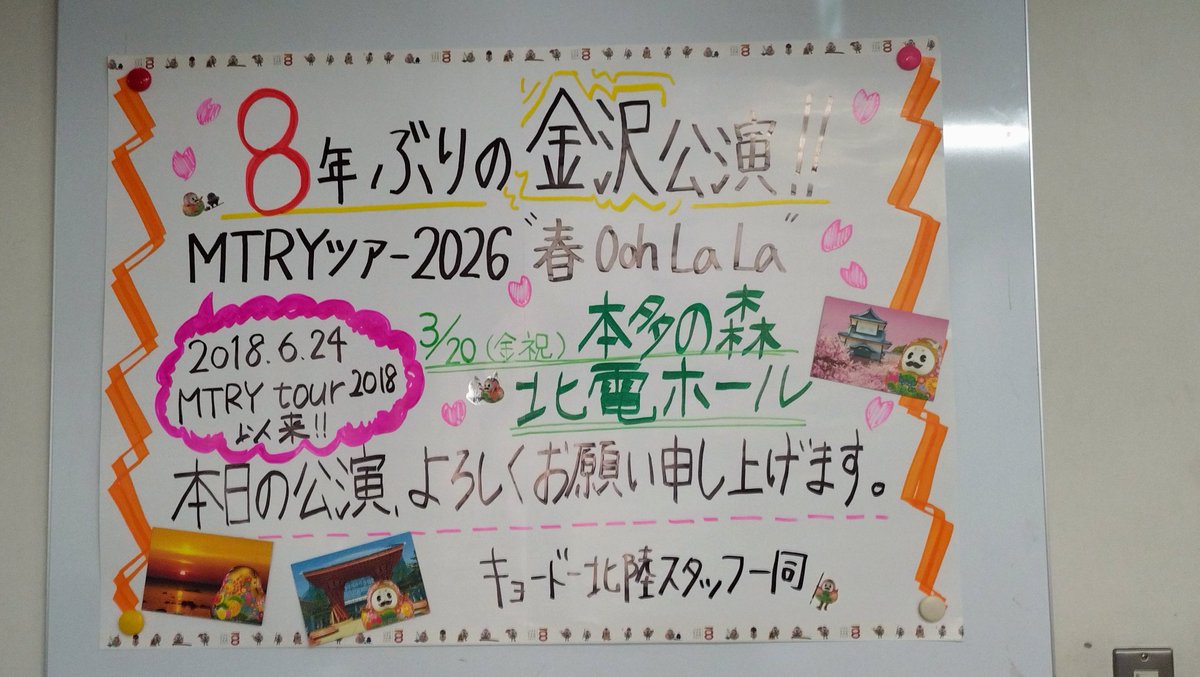 8年ぶりの金沢公演!!
MTRYツアー2026"春Ooh La La"
2018.6.24
MTRY tour 2018
以来!!
3/20(金祝)本多の森
北電ホール
本日の公演、よろしくお願い申し上げます。
キョードー北陸スタッフ一同